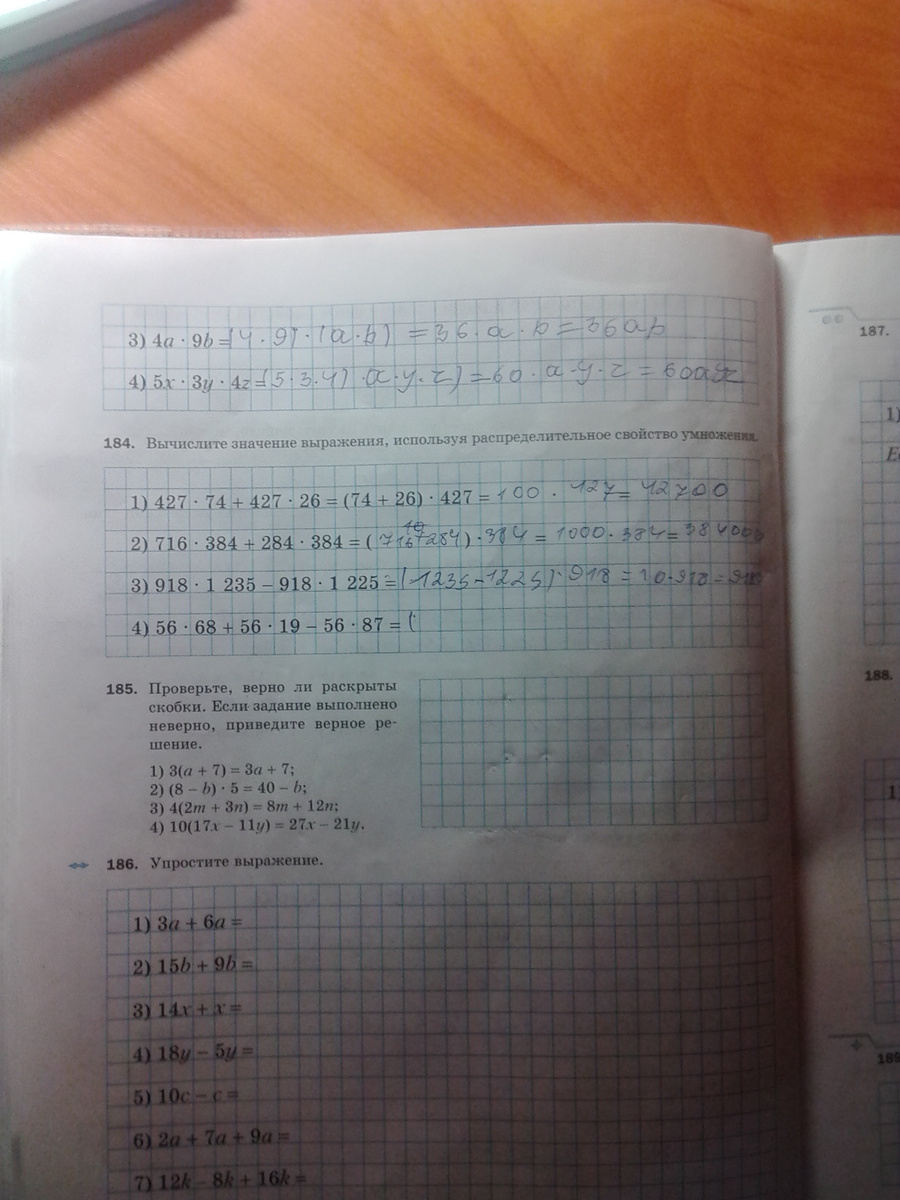 3) 4a · 9b = (4 · 9) · (a · b) = 36 · a · b = 36ab
4) 5x · 3y · 4z = (5 · 3 · 4) · (x · y · z) = 60 · x · y · z = 60xyz
184. Вычислите значение выражения, используя распределительное свойство умножения.
1) 427 · 74 + 427 · 26 = (74 + 26) · 427 = 100 · 427 = 42700
2) 716 · 384 + 284 · 384 = (716+284) · 384 = 1000 · 384 = 384000
3) 918 · 1 235 – 918 · 1 225 = (1235 – 1225) · 918 = 10 · 918 = 9180
4) 56 · 68 + 56 · 19 – 56 · 87 = (
185. Проверьте, верно ли раскрыты
скобки. Если задание выполнено
неверно, приведите верное ре-
шение.
1) 3(a + 7) = 3a + 7;
2) (8 – b) · 5 = 40 – b;
3) 4(2m + 3n) = 8m + 12n;
4) 10(17x – 11y) = 27x – 21y.
186. Упростите выражение.
1) 3a + 6a =
2) 15b + 9b =
3) 14x + x =
4) 18y – 5y =
5) 10c – c =
6) 2a + 7a + 9a =
7) 12k – 8k + 16k =
187.
1)
188.
1)
189